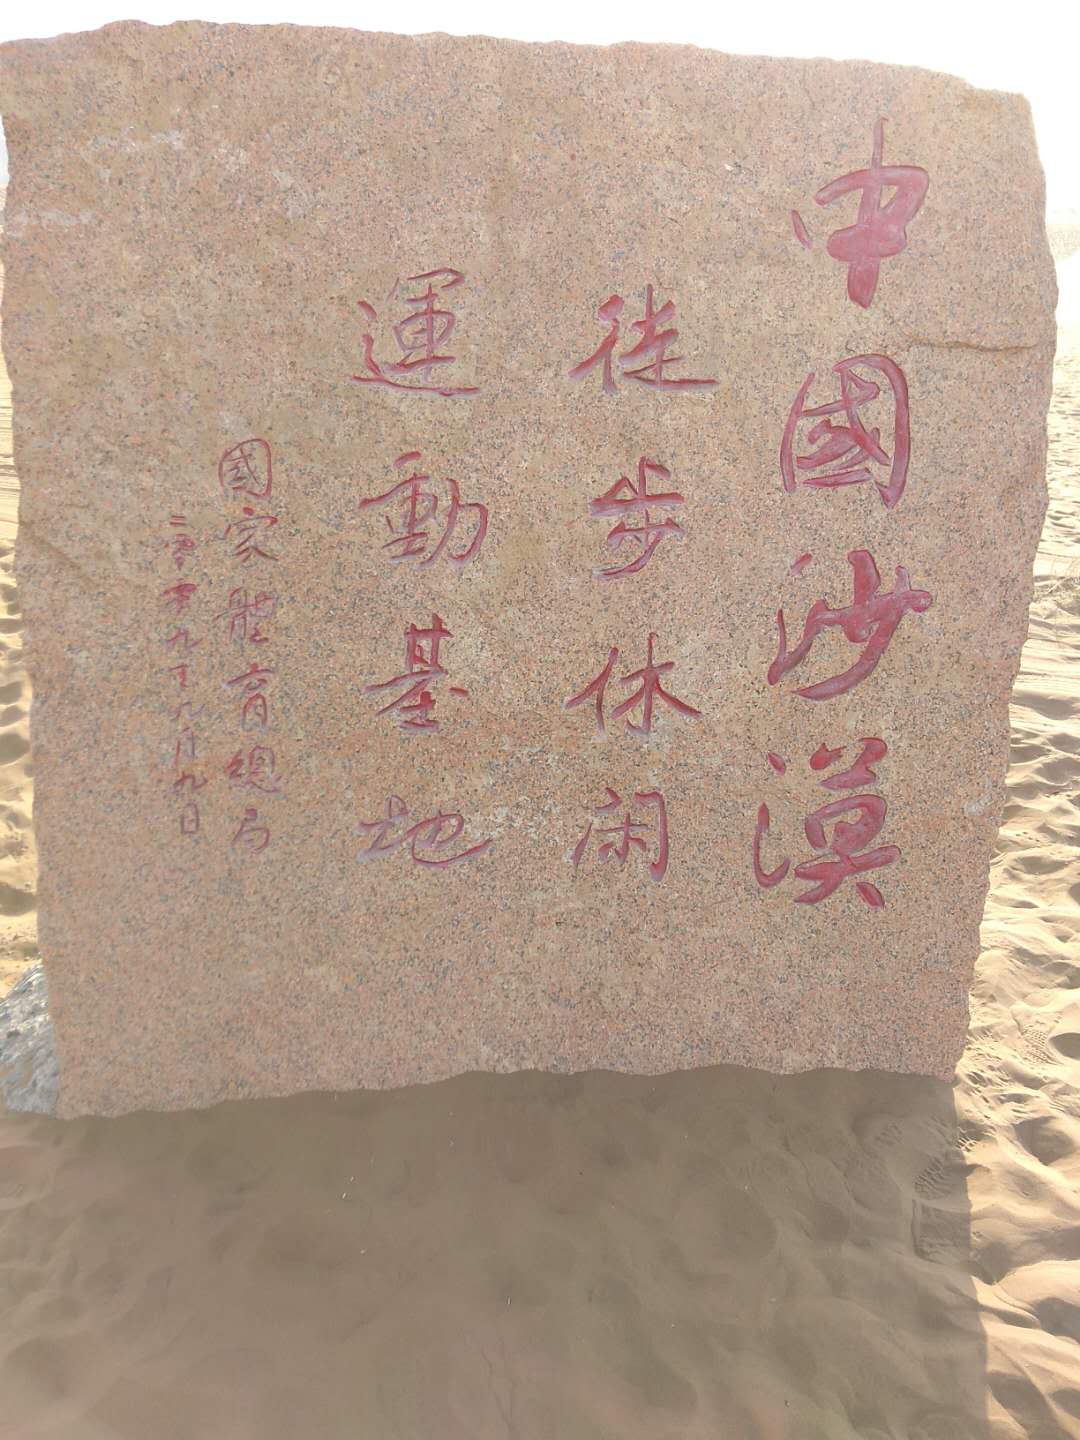 中國沙漠
徒步休闲
運動基地
國家體育總局
二零零九年九月九日